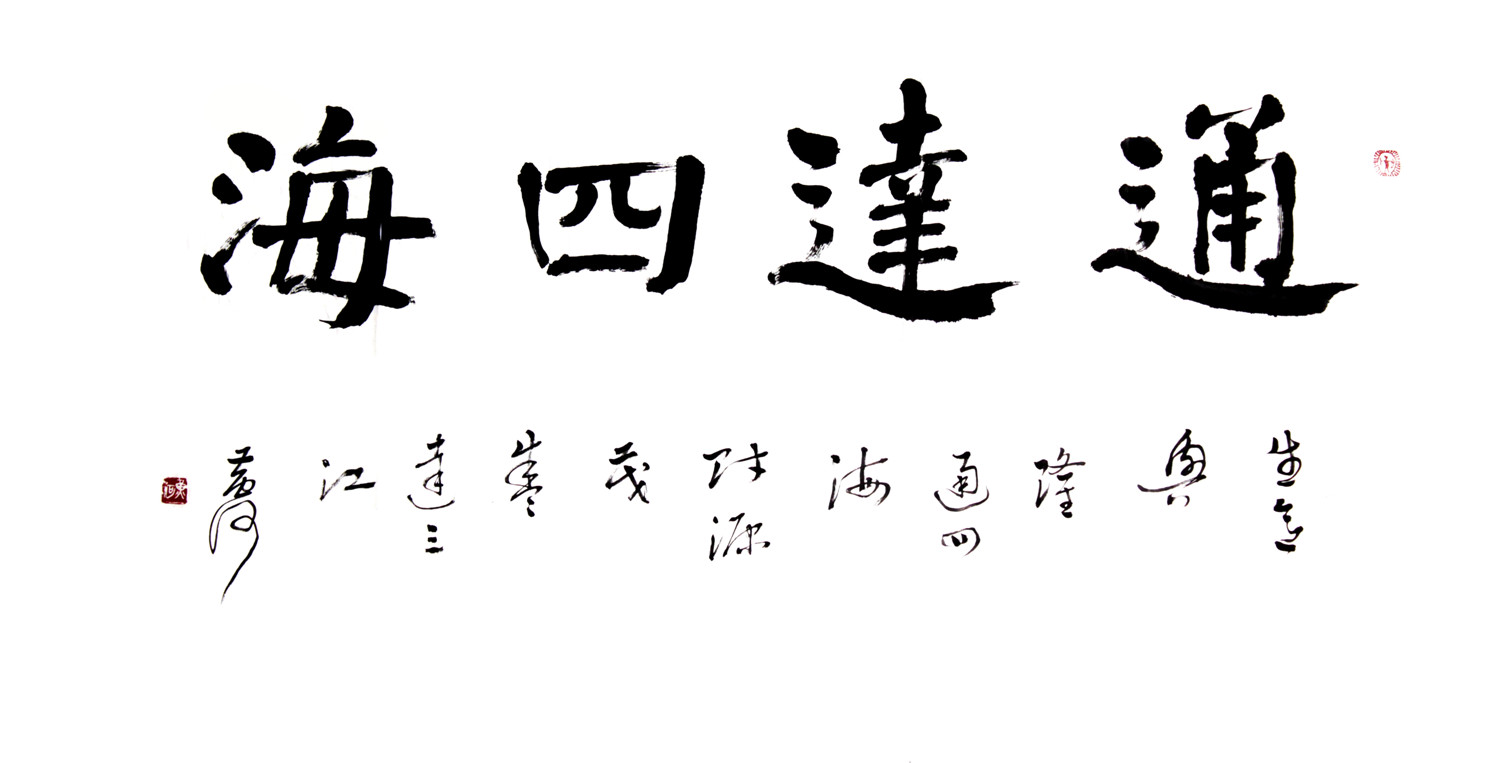 通達四海
生意
興
隆
通四
海
財源
茂
盛
達三
江
黄河